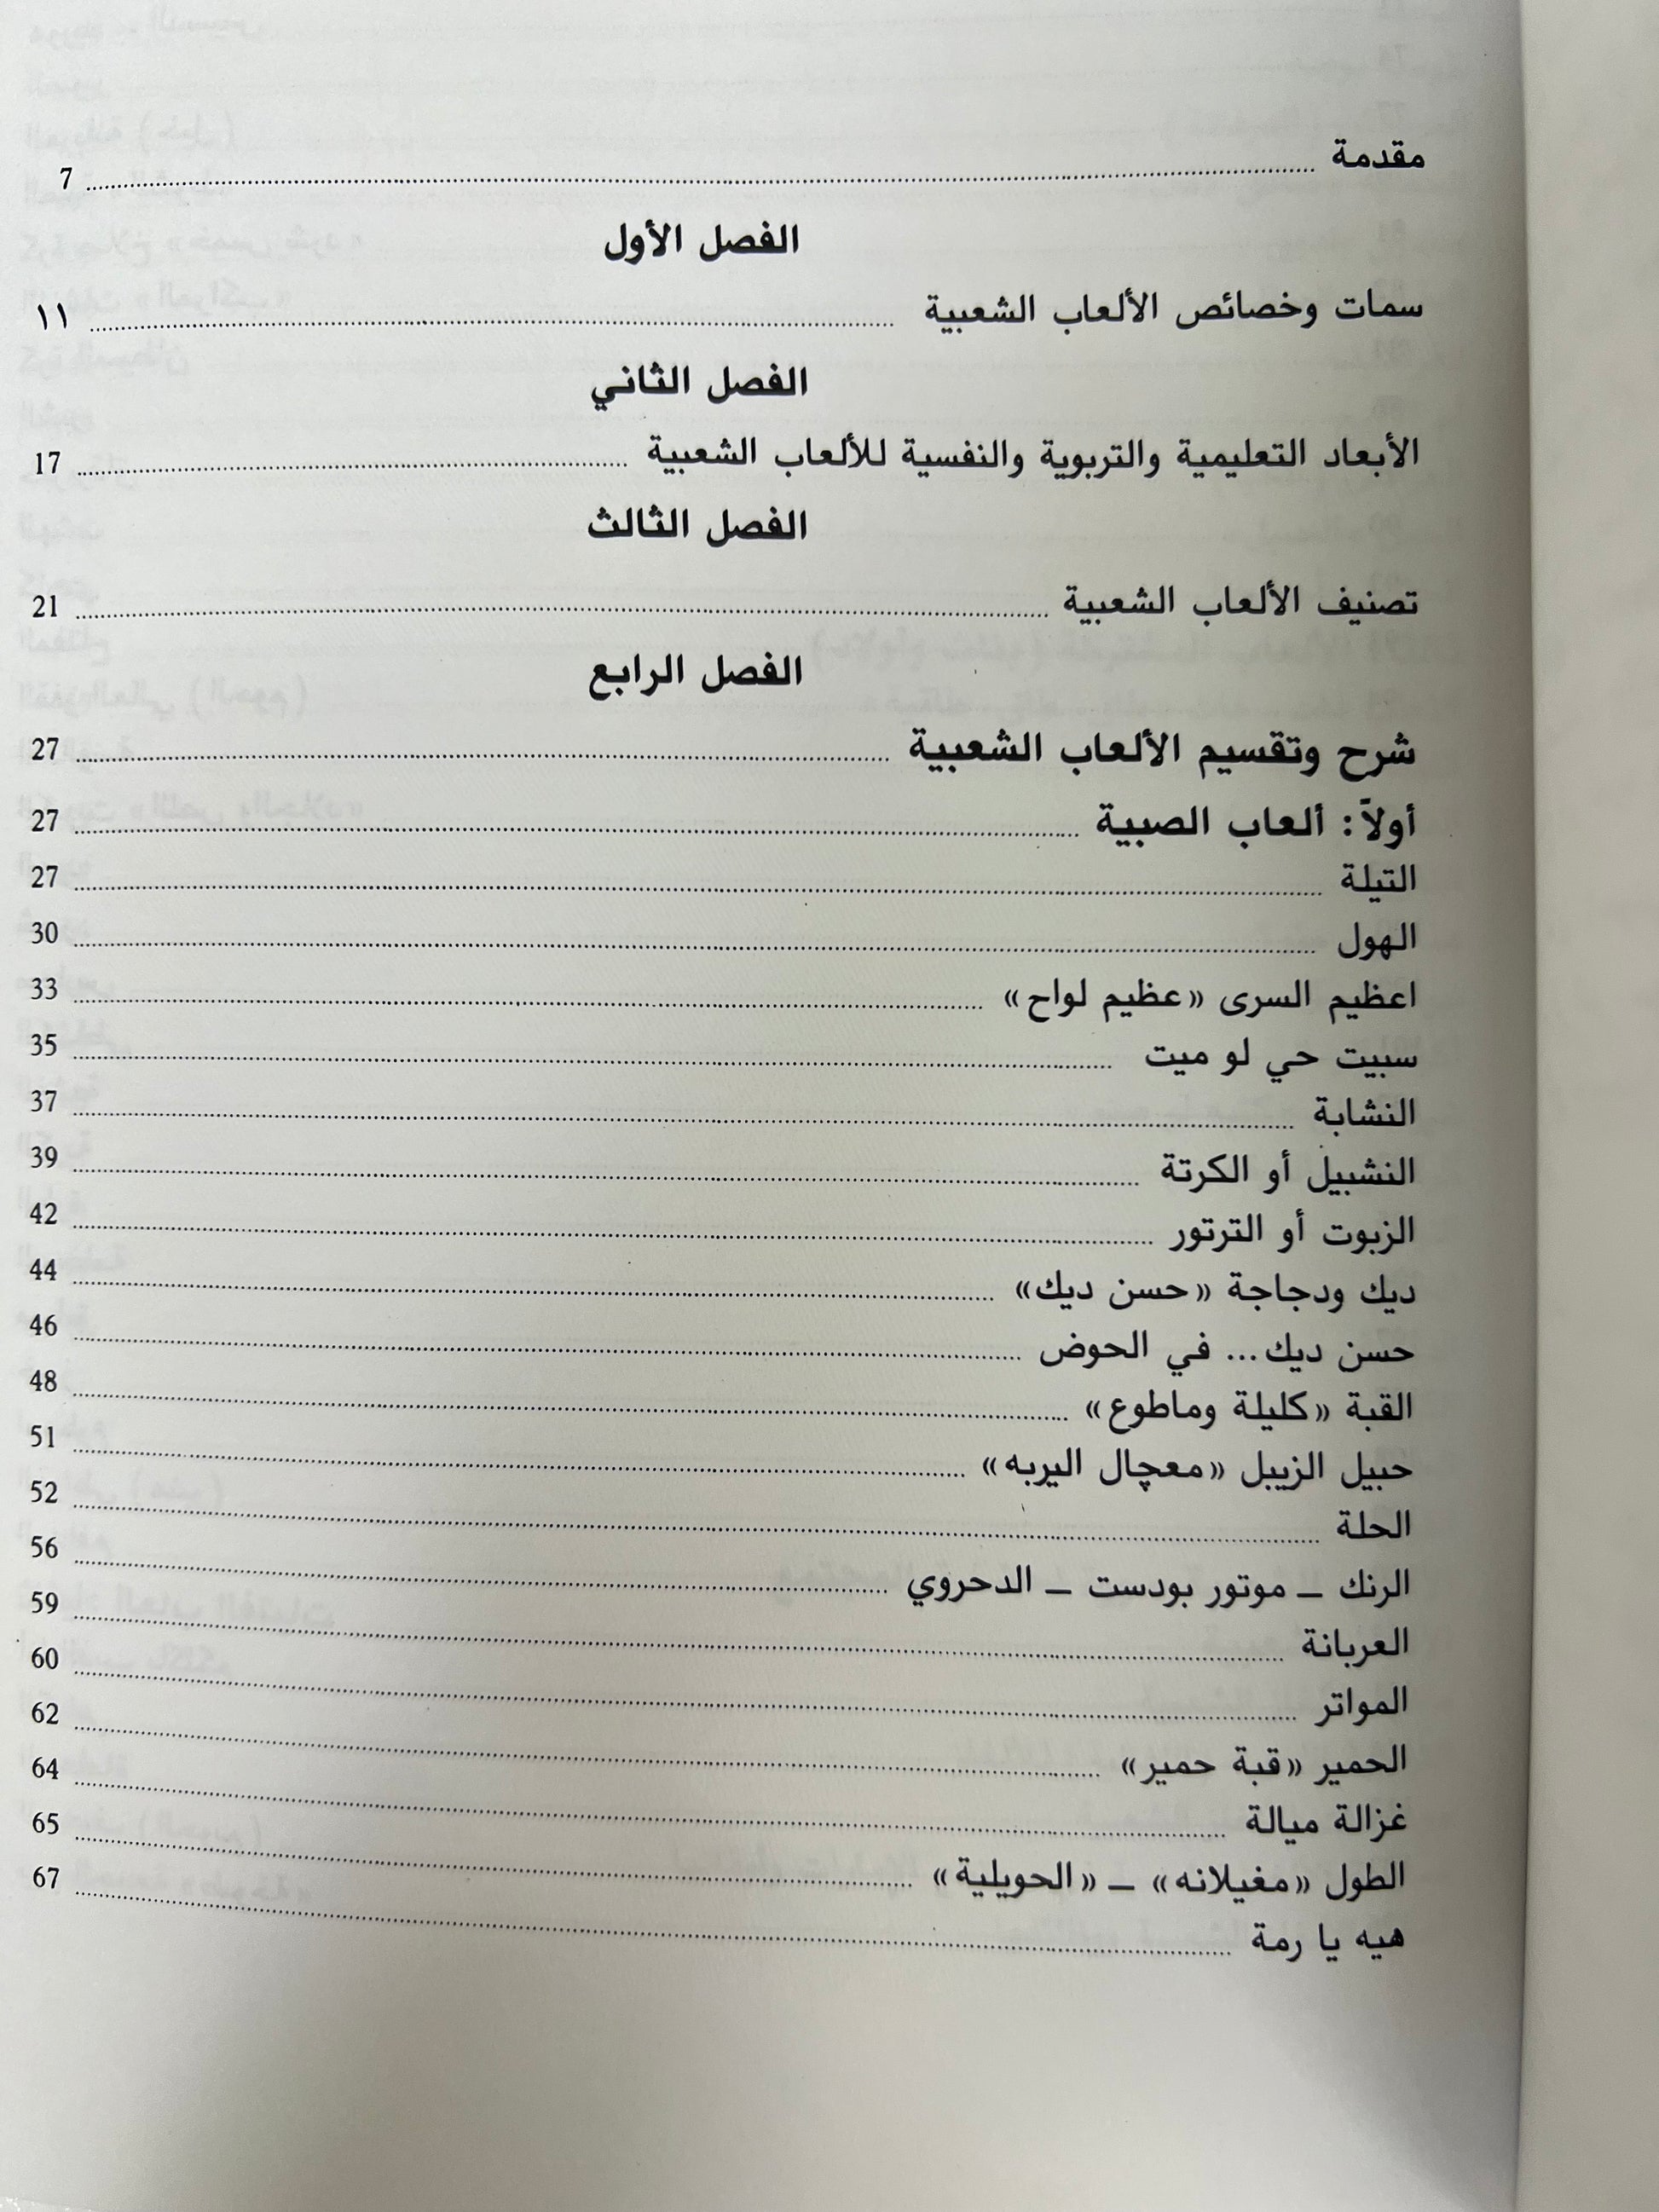 مقدمة ........ 7
الفصل الأول
سمات وخصائص الألعاب الشعبية ........ ١١
الفصل الثاني
الأبعاد التعليمية والتربوية والنفسية للألعاب الشعبية ........ 17
الفصل الثالث
تصنيف الألعاب الشعبية ........ 21
الفصل الرابع
شرح وتقسيم الألعاب الشعبية ........ 27
أولاً: ألعاب الصبية ........ 27
التيلة ........ 27
الهول ........ 30
اعظيم السرى «عظيم لواح» ........ 33
سبيت حي لو ميت ........ 35
النشابة ........ 37
النشبيل أو الكرتة ........ 39
الزبوت أو الترتور ........ 42
ديك ودجاجة «حسن ديك» ........ 44
حسن ديك... في الحوض ........ 46
القبة «كليلة وماطوع» ........ 48
حبيل الزيبل «معچال اليربه» ........ 51
الحلة ........ 52
الرنك ــ موتور بودست ــ الدحروي ........ 56
العربانة ........ 59
المواتر ........ 60
الحمير «قبة حمير» ........ 62
غزالة ميالة ........ 64
الطول «مغيلانه» ــ «الحويلية» ........ 65
هيه يا رمة ........ 67